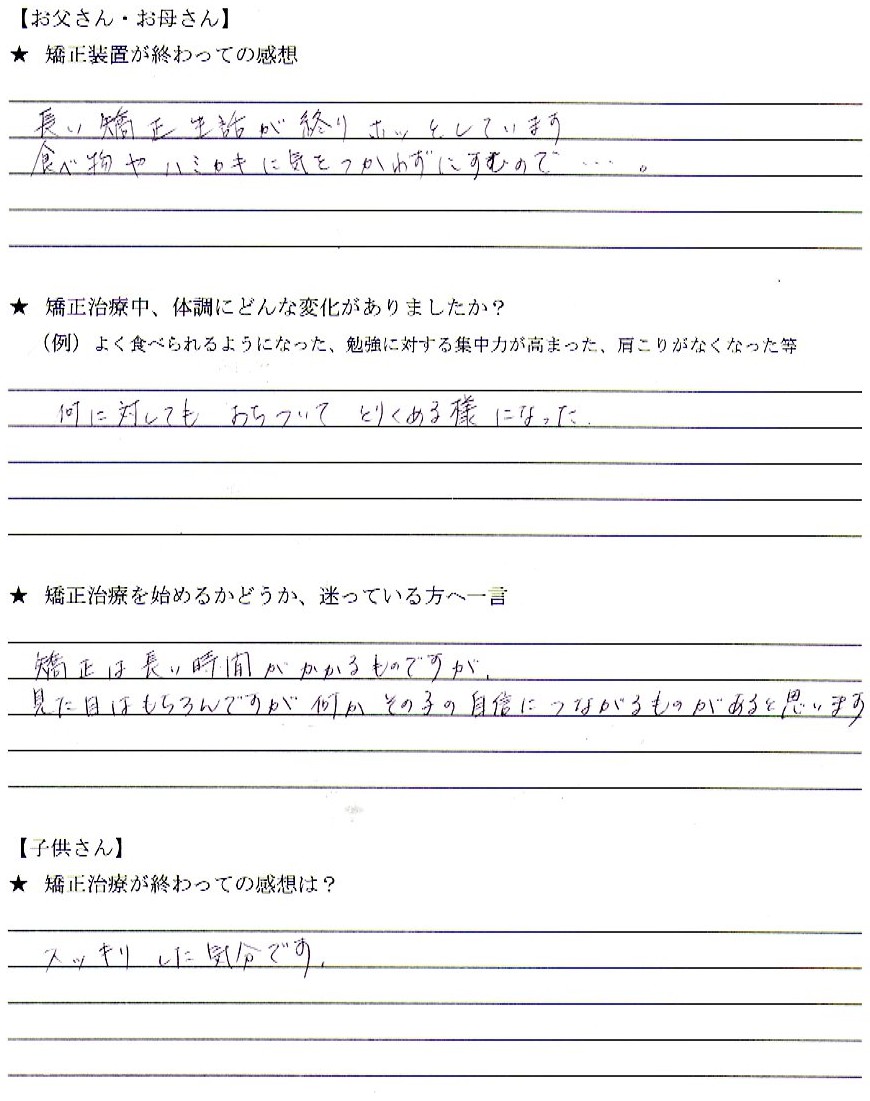 【お父さん・お母さん】
★ 矯正装置が終わっての感想
長い矯正生活が終りホッとしています
食べ物やハミガキに気をつかわずにすむので…。
★ 矯正治療中、体調にどんな変化がありましたか？
（例）よく食べられるようになった、勉強に対する集中力が高まった、肩こりがなくなった等
何に対しても おちついて とりくめる様になった.
★ 矯正治療を始めるかどうか、迷っている方へ一言
矯正は長い時間がかかるものですが、
見た目はもちろんですが何かその子の自信につながるものがあると思います
【子供さん】
★ 矯正治療が終わっての感想は？
スッキリした気分です.